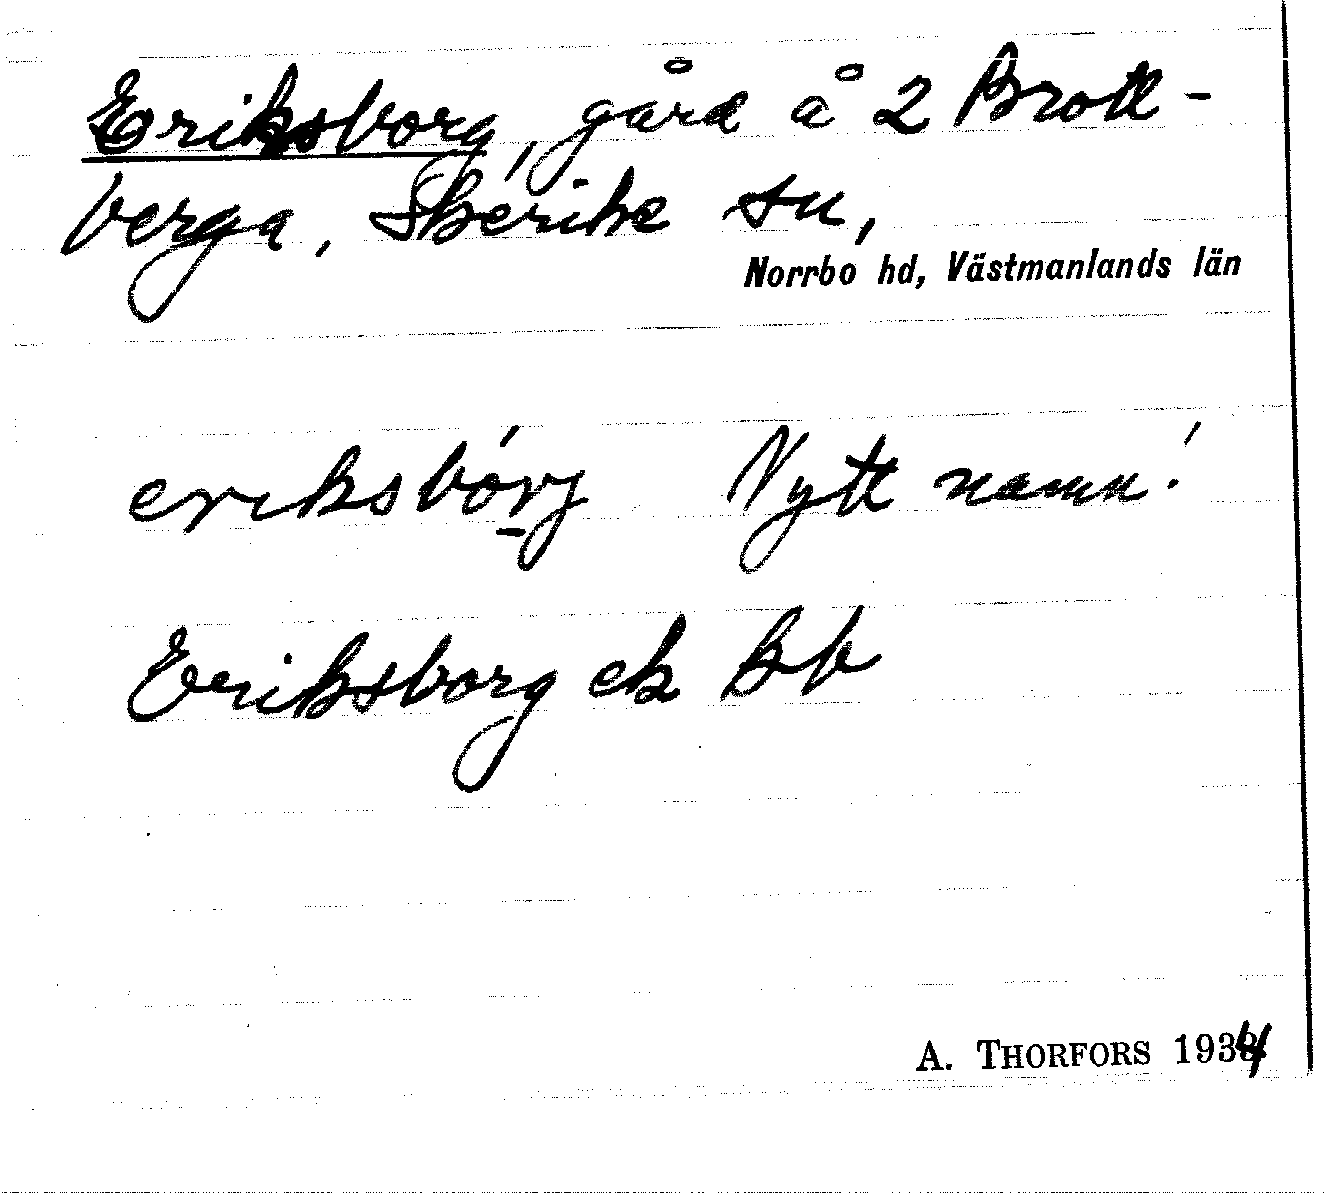 Eriksborg, gård å 2 Brott-
berga, Skerike sn,
Norrbo hd, Västmanlands län
eriksbórj Nytt namn!
Eriksborg ek Bb
A. THORFORS 1934